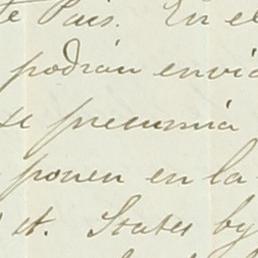 Pais. En el
podrian envia
se precunia
ponen en la
st. States by